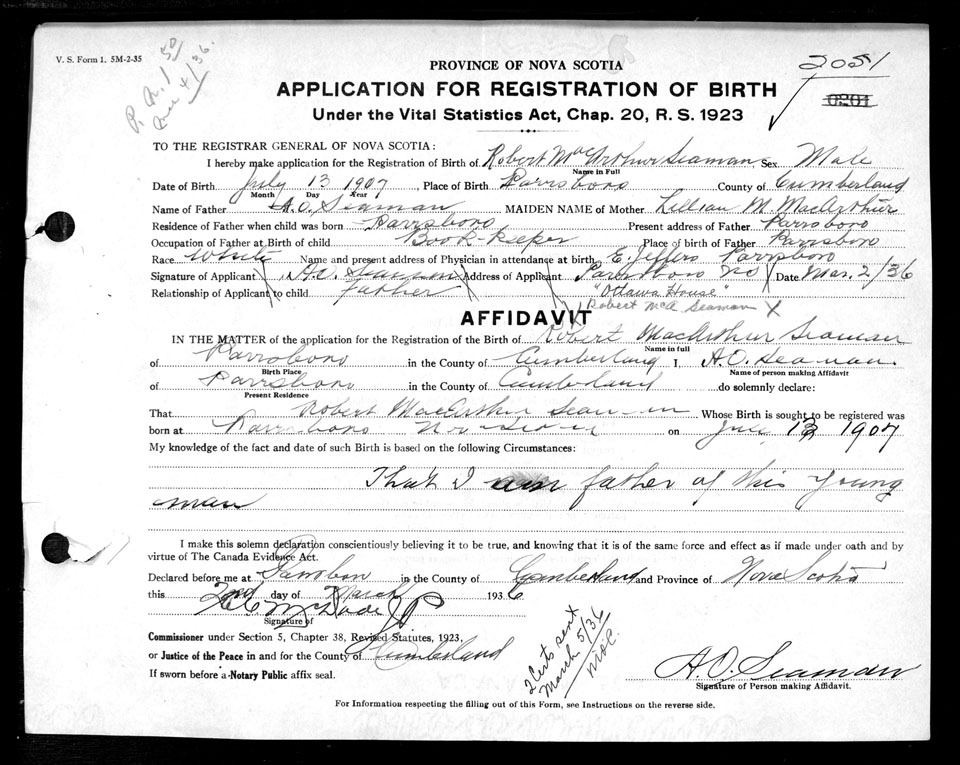 V. S. Form 1. 5M-2-35
PROVINCE OF NOVA SCOTIA
2051
APPLICATION FOR REGISTRATION OF BIRTH
0201
Under the Vital Statistics Act, Chap. 20, R. S. 1923
TO THE REGISTRAR GENERAL OF NOVA SCOTIA:
I hereby make application for the Registration of Birth of Robert MacArthur Seaman, Sex Male
Name in Full
Date of Birth July 13 1907, Place of Birth Parrsboro County of Cumberland
Month Day Year
Name of Father A. O. Seaman MAIDEN NAME of Mother Lillian M. MacArthur
Residence of Father when child was born Parrsboro Present address of Father Parrsboro
Occupation of Father at Birth of child Book-keeper Place of birth of Father Parrsboro
Race White Name and present address of Physician in attendance at birth E. Jeffers Parrsboro
Signature of Applicant A. O. Seaman Address of Applicant Parrsboro NS Date Mar. 2/36
Relationship of Applicant to child father "Ottawa House"
Robert McA Seaman X
AFFIDAVIT
IN THE MATTER of the application for the Registration of the Birth of Robert MacArthur Seaman
Name in full
of Parrsboro in the County of Cumberland I, A. O. Seaman
Birth Place Name of person making Affidavit
of Parrsboro in the County of Cumberland do solemnly declare:
Present Residence
That Robert MacArthur Seaman Whose Birth is sought to be registered was
born at Parrsboro Nova Scotia on July 13 1907
My knowledge of the fact and date of such Birth is based on the following Circumstances:
That I am father of this young
man
I make this solemn declaration conscientiously believing it to be true, and knowing that it is of the same force and effect as if made under oath and by
virtue of The Canada Evidence Act.
Declared before me at Parrsboro in the County of Cumberland and Province of Nova Scotia
this 2nd day of March 1936
JP
Signature of
Commissioner under Section 5, Chapter 38, Revised Statutes, 1923,
or Justice of the Peace in and for the County of Cumberland
If sworn before a Notary Public affix seal.
2 Certs sent
March 5/36
A. O. Seaman
Signature of Person making Affidavit.
For Information respecting the filling out of this Form, see Instructions on the reverse side.